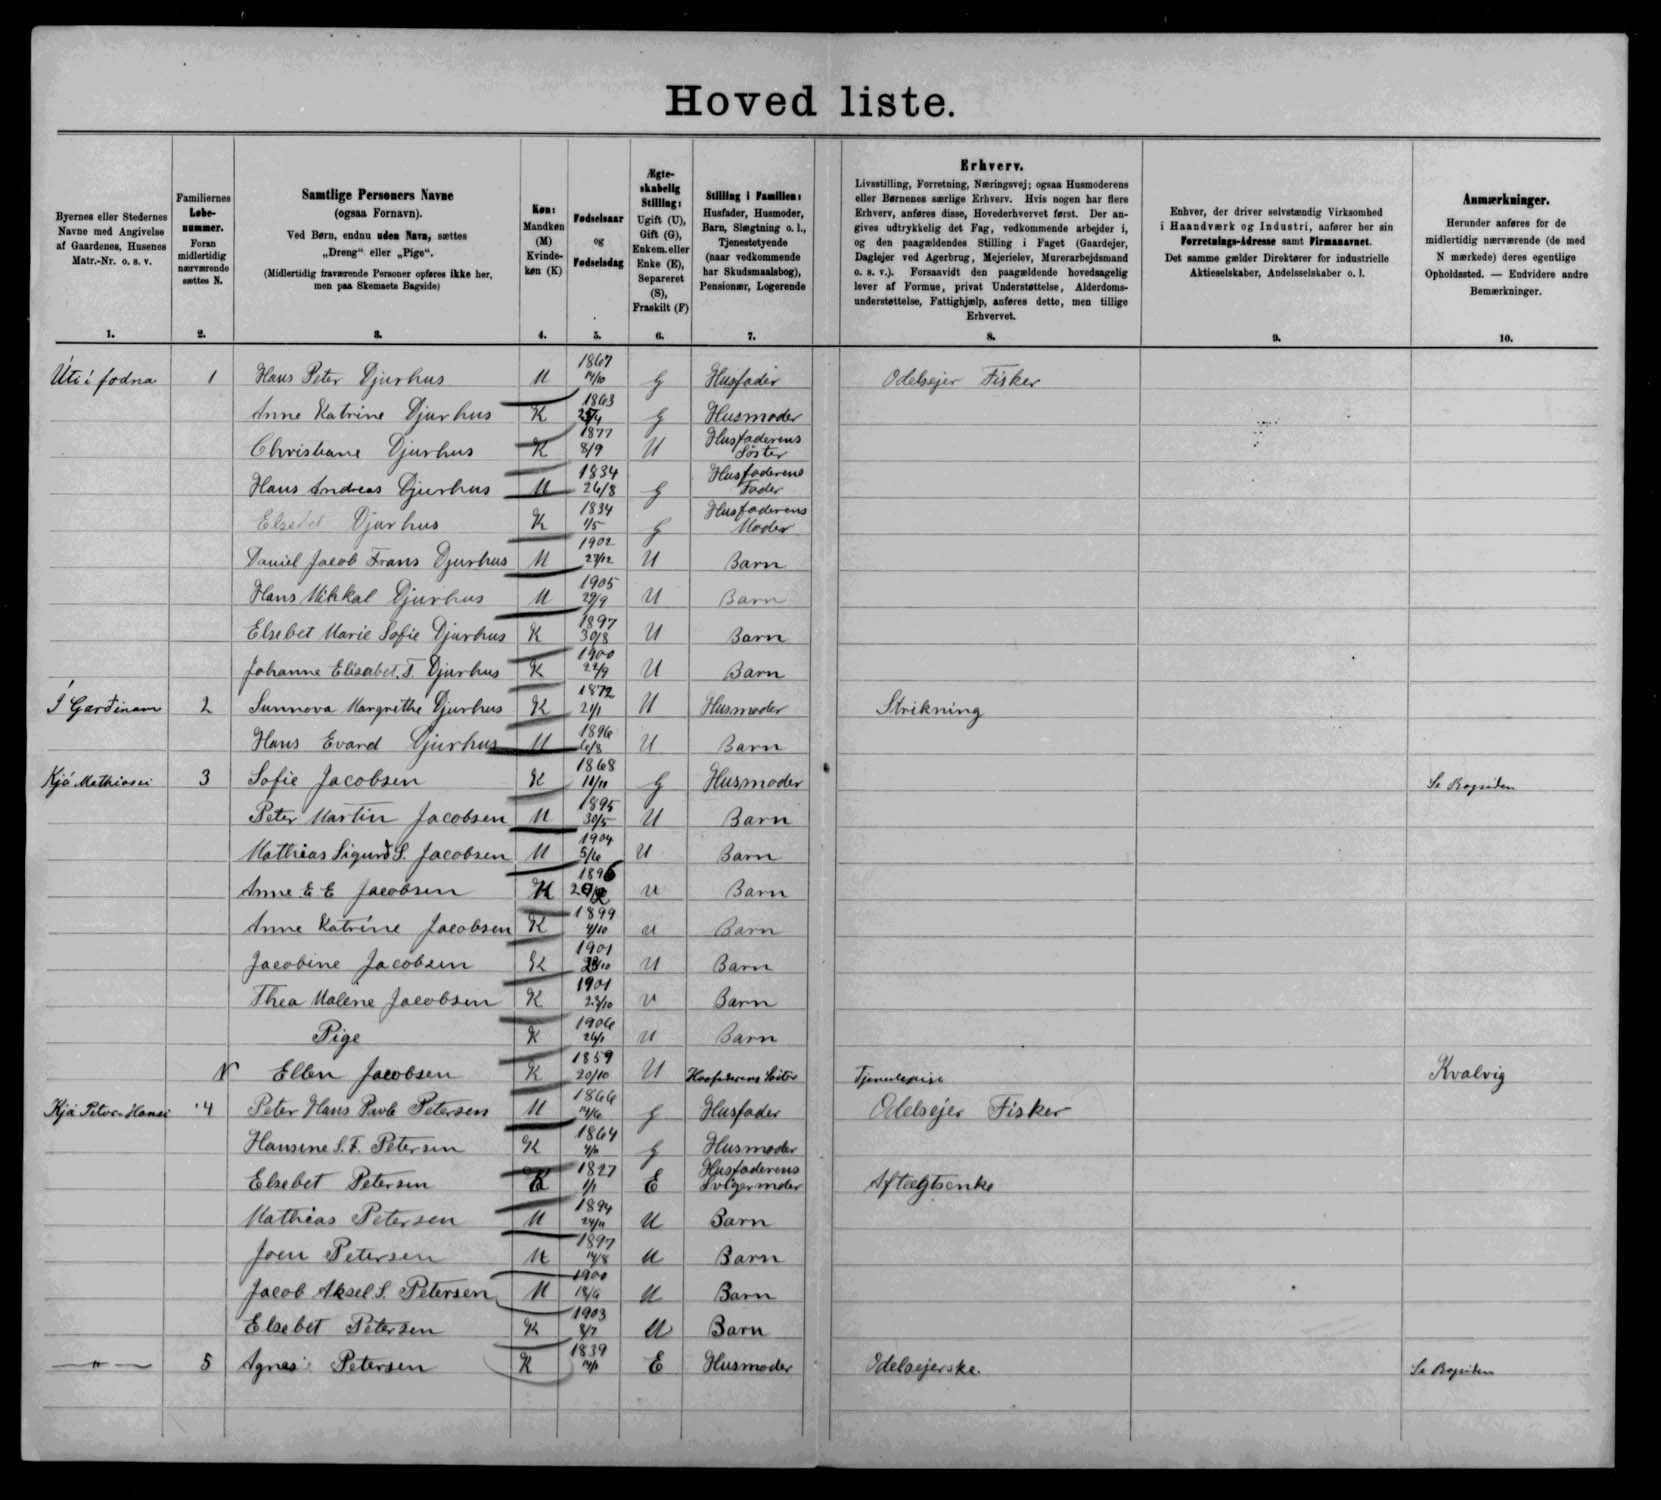 Hoved liste.
Byernes eller Stedernes
Navne med Angivelse
af Gaardenes, Husenes
Matr.-Nr. o. s. v.
1.
Familiernes
Løbe-
nummer.
Foran
midlertidig
nærværende
sættes N.
2.
Samtlige Personers Navne
(ogsaa Fornavn).
Ved Børn, endnu uden Navn, sættes
„Dreng“ eller „Pige“.
(Midlertidig fraværende Personer opføres ikke her,
men paa Skemaets Bagside)
3.
Køn:
Mandkøn
(M)
Kvinde-
køn (K)
4.
Fødselsaar
og
Fødselsdag
5.
Ægte-
skabelig
Stilling:
Ugift (U),
Gift (G),
Enkem. eller
Enke (E),
Separeret
(S),
Fraskilt (F)
6.
Stilling i Familien:
Husfader, Husmoder,
Barn, Slægtning o. l.,
Tjenestetyende
(naar vedkommende
har Skudsmaalsbog),
Pensionær, Logerende
7.
Erhverv.
Livsstilling, Forretning, Næringsvej; ogsaa Husmoderens
eller Børnenes særlige Erhverv. Hvis nogen har flere
Erhverv, anføres disse, Hovederhvervet først. Der an-
gives udtrykkelig det Fag, vedkommende arbejder i,
og den paagældendes Stilling i Faget (Gaardejer,
Daglejer ved Agerbrug, Mejerielev, Murerarbejdsmand
o. s. v.). Forsaavidt den paagældende hovedsagelig
lever af Formue, privat Understøttelse, Alderdoms-
understøttelse, Fattighjælp, anføres dette, men tillige
Erhvervet.
8.
Enhver, der driver selvstændig Virksomhed
i Haandværk og Industri, anfører her sin
Forretnings-Adresse samt Firmanavnet.
Det samme gælder Direktører for industrielle
Aktieselskaber, Andelsselskaber o. l.
9.
Anmærkninger.
Herunder anføres for de
midlertidig nærværende (de med
N mærkede) deres egentlige
Opholdssted. — Endvidere andre
Bemærkninger.
10.
Úti í fodna 1 Hans Peter Djurhus M 1867 14/10 G Husfader Odelsejer Fisker
Anne Katrine Djurhus K 1863 G Husmoder
Christiane Djurhus K 1877 8/9 U Husfaderens Søster
Hans Andreas Djurhus M 1834 26/8 G Husfaderens Fader
Djurhus K 1834 1/5 G Husfaderens Moder
Daniel Jacob Frans Djurhus M 1902 27/12 U Barn
Hans Mikkal Djurhus M 1905 29/9 U Barn
Elsebet Marie Sofie Djurhus K 1897 30/8 U Barn
Johanne Elisabet. T. Djurhus K 1900 22/9 U Barn
Í Garðinam 2 Sunnova Margrethe Djurhus K 1872 21/1 U Husmoder Strikning
Hans Evard Djurhus M 1896 6/8 U Barn
Kjá Mathiasi 3 Sofie Jacobsen K 1868 11/11 G Husmoder Se Bagsiden
Peter Martin Jacobsen M 1895 30/5 U Barn
Mathias Sigurd S. Jacobsen M 1904 5/6 U Barn
Anne E E Jacobsen K 1896 U Barn
Anne Katrine Jacobsen K 1899 4/10 U Barn
Jacobine Jacobsen K 1901 23/10 U Barn
Thea Malene Jacobsen K 1901 23/10 U Barn
Pige K 1906 26/1 U Barn
N Ellen Jacobsen K 1859 20/10 U Husfaderens Søster Tjenestepige Kvalvig
Kjá Petur-Hansi 4 Peter Hans Pavli Petersen M 1866 14/6 G Husfader Odelsejer Fisker
Hansine S. F. Petersen K 1864 4/11 G Husmoder
Elsebet Petersen K 1827 1/1 E Husfaderens Svigermoder Aftægtsenke
Mathias Petersen M 1894 24/11 U Barn
Joen Petersen M 1897 14/8 U Barn
Jacob Aksel S. Petersen M 1900 18/9 U Barn
Elsebet Petersen K 1903 8/7 U Barn
— „ — 5 Agnes Petersen K 1839 E Husmoder Odelsejerske. Se Bagsiden